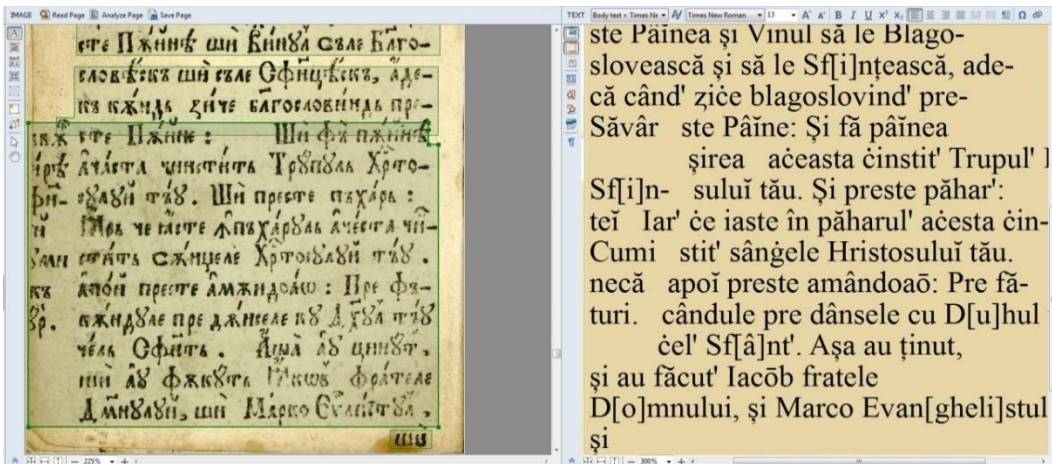 IMAGE Read Page Analyze Page Save Page
сте Пѫинѣ ши Винꙋл съле Блго-
словѣскъ ши съле Сфинцѣскъ, аде-
къ кѫндь зиче благословиндь пре-
сте Пѫине : Ши фъ пѫинѣ
ачаста чинститъ Трꙋпꙋль Хрто-
сꙋлꙋй тъꙋ. Ши престе пъхарь :
апой престе амѫндоаѡ : Пре фъ-
кѫндꙋле пре дѫнселе кꙋ Дхꙋл тъꙋ
чель Сфѫнть. Аша аꙋ цинꙋт,
ши аꙋ фъкꙋть Іакѡв фрателе
Дмнꙋлꙋй, ши Марко
ши
225%
TEXT Body text + Times Ne Times New Roman 13 A A B I U x² x₂ Ω
ste Pâinea și Vinul să le Blago-
slovească și să le Sf[i]nțească, ade-
că când' zice blagoslovind' pre-
Săvâr ste Pâĭne: Și fă pâĭnea
șirea aċeasta ċinstit' Trupul'
Sf[i]n- suluĭ tău. Și preste păhar':
teĭ Iar' ċe iaste în păharul' aċesta ċin-
Cumi stit' sânġele Hristosuluĭ tău.
necă apoĭ preste amândoaō: Pre fă-
turi. cândule pre dânsele cu D[u]hul
ċel' Sf[â]nt'. Așa au ținut,
și au făcut' Iacōb fratele
D[o]mnului, și Marco Evan[gheli]stul
și
300%